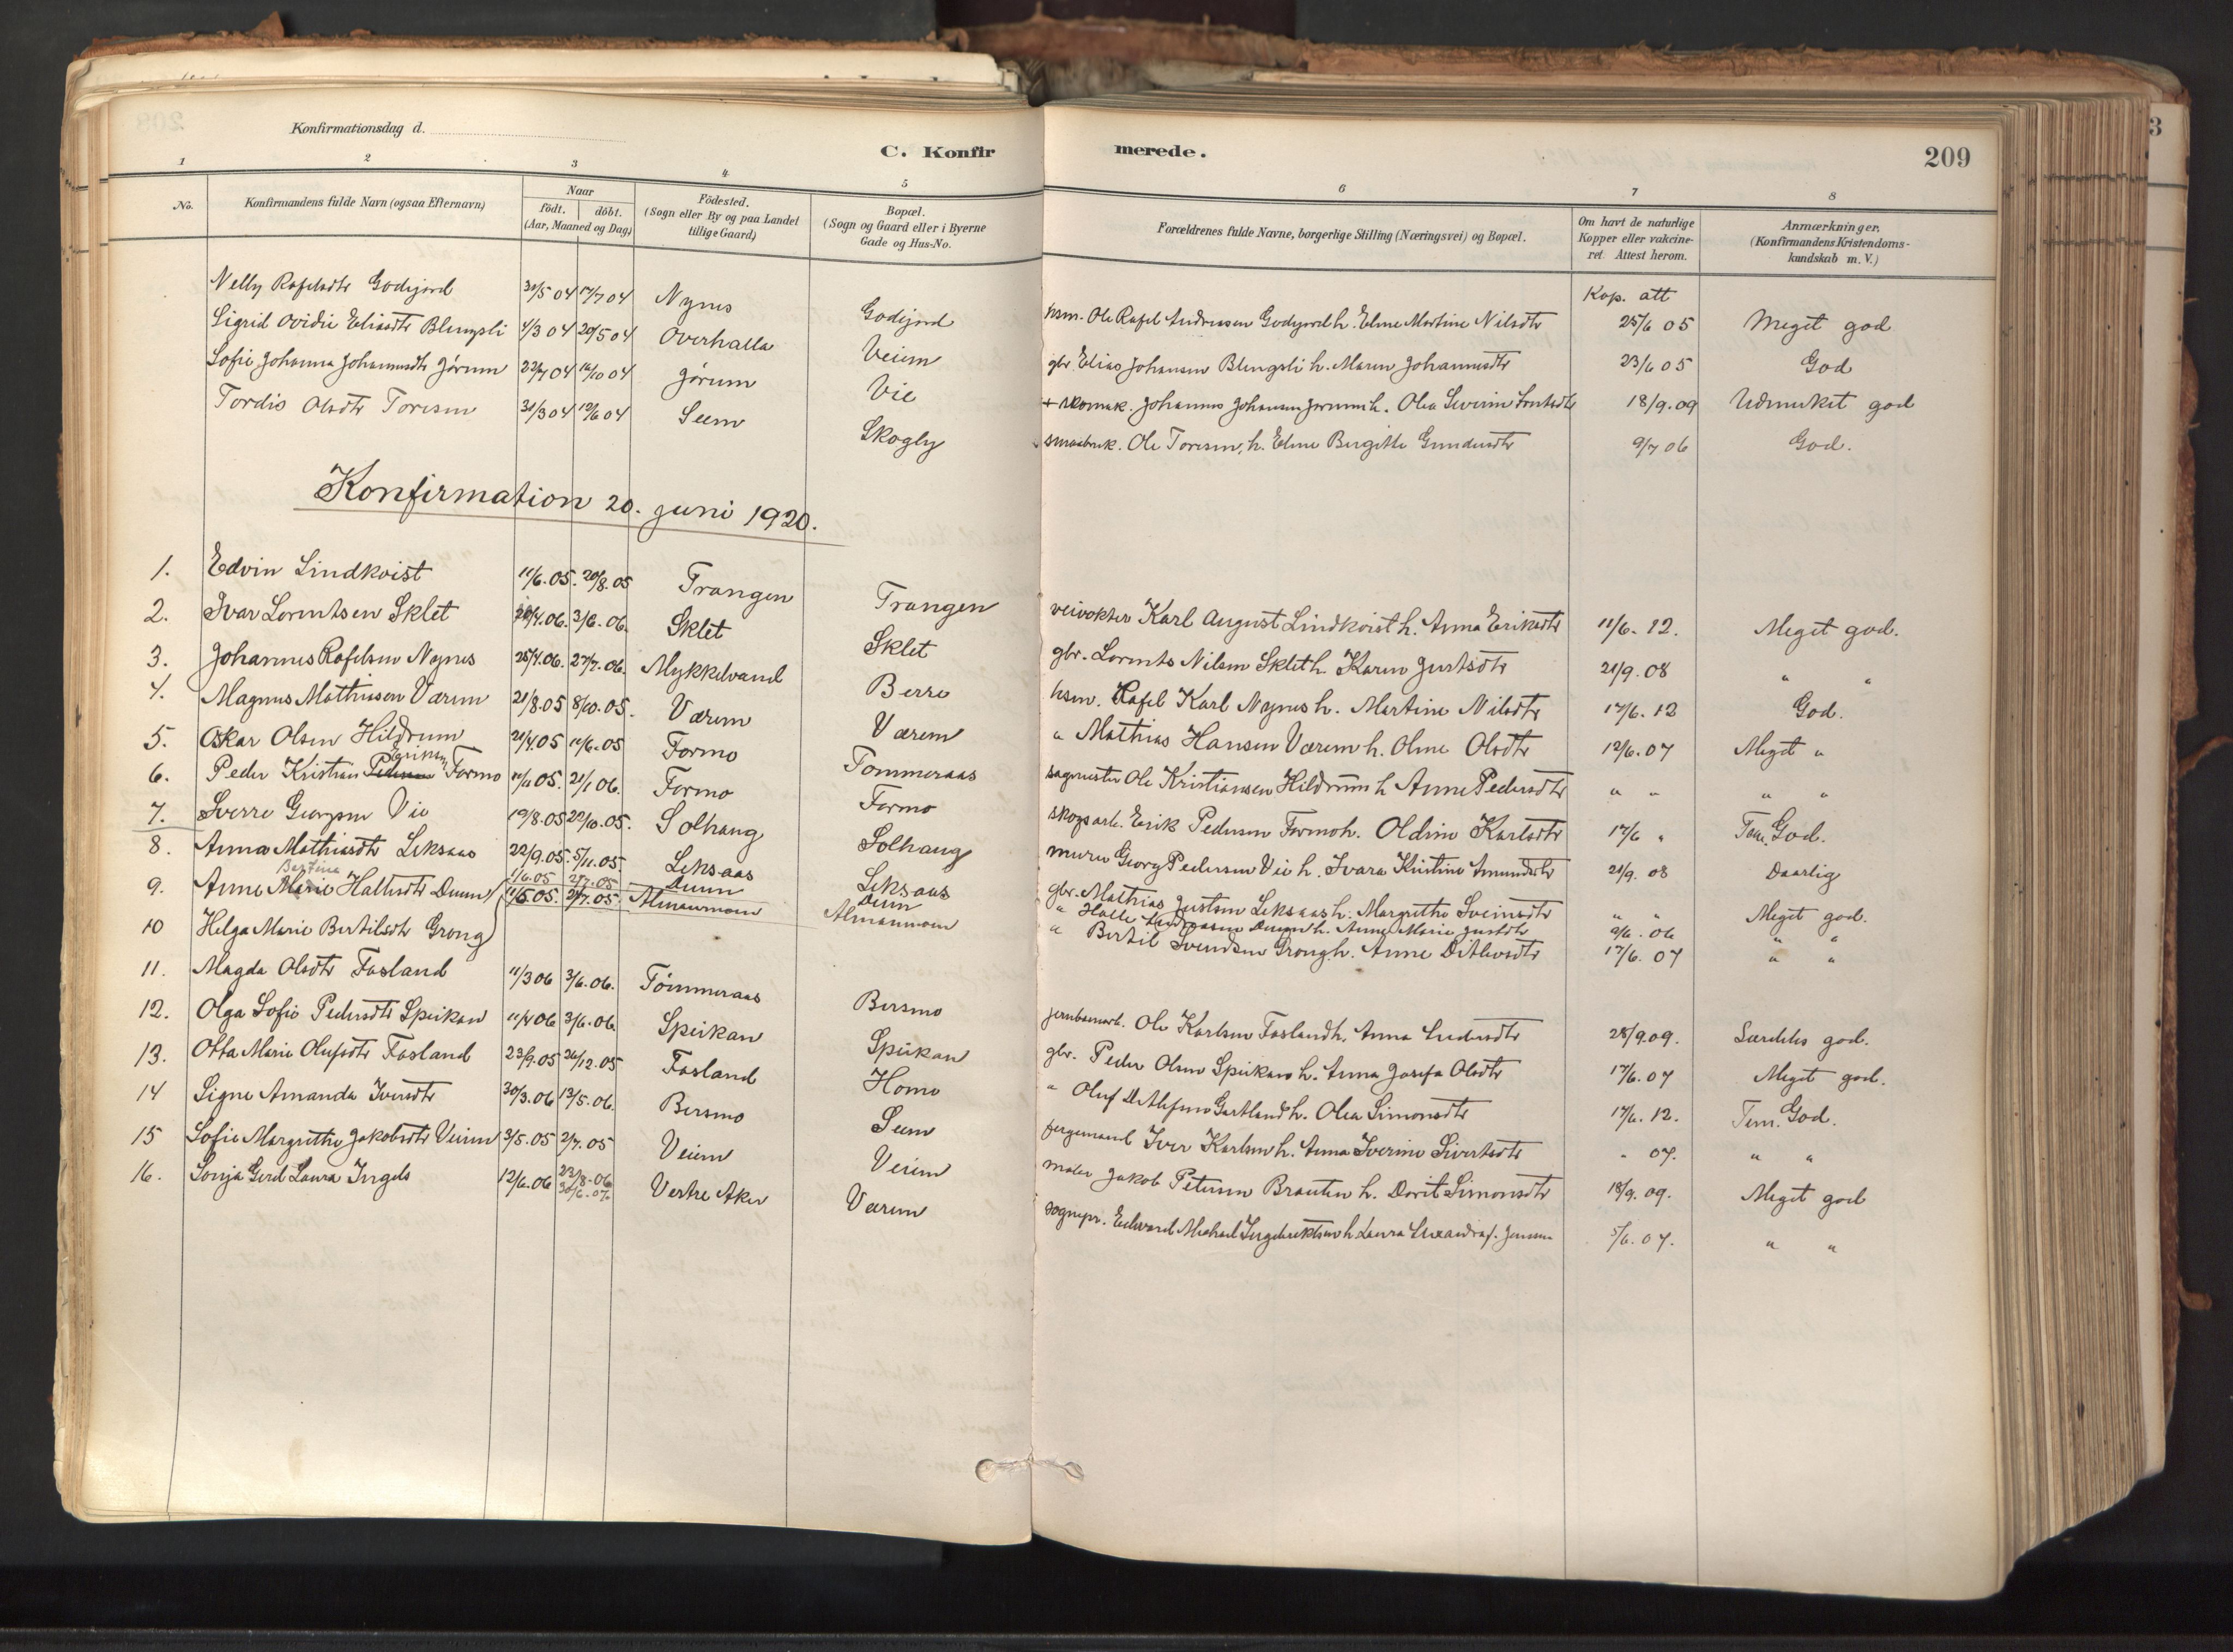 Konfirmationsdag d.
C. Konfirmerede.
209
1 2 3 4 5 6 7 8
No.
Konfirmandens fulde Navn (ogsaa Efternavn)
Naar födt. döbt. (Aar, Maaned og Dag)
Födested. (Sogn eller By og paa Landet tillige Gaard)
Bopæl. (Sogn og Gaard eller i Byerne Gade og Hus-No.
Forældrenes fulde Navne, borgerlige Stilling (Næringsvei) og Bopæl.
Om havt de naturlige Kopper eller vakcineret. Attest herom.
Anmærkninger. (Konfirmandens Kristendomskundskab m. V.)
Kop. att
Nelly Rafelsdtr Godejord 30/5 04 17/7 04 Nynes Godejord hsm. Ole Rafel Andreassen Godejord h. Elme Martine Nilsdtr 25/6 05 Meget god
Sigrid Ovidie Eliasdtr Blengsli 4/3 04 20/5 04 Overhalla Veium gbr. Elias Johansen Blengsli h. Maren Johannesdtr 23/6 05 God
Sofie Johanna Johannesdtr Jørum 22/7 04 16/10 04 Jørum Vie + skomak. Johannes Johansen Jørum h. Olea Severine 18/9.09 Udmerket god
Tordis Olsdtr Toresen 31/3 04 12/6 04 Seem Skogly smaabruk. Ole Toresen, h. Eline Birgitte Gundersdtr 9/7 06 God.
Konfirmation 20. juni 1920.
1. Edvin Lindkvist 11/6.05. 20/8.05 Trangen Trangen veivokter Karl August Lindkvist h. Anna Eriksdtr 11/6. 12. Meget god.
2. Ivar Lorentsen Sklet 20/4.06. 3/6.06. Sklet Sklet gbr. Lorents Nilsen Sklet h. Karen Justsdtr 21/9. 08 " "
3. Johannes Rafelsen Nynes 25/4.06. 27/7.06. Mykkelvand Berre hsm. Rafel Karl Nynes h. Martine Nilsdtr 17/6. 12 God.
4. Magnus Mathiasen Værem 21/8.05 8/10.05. Værem Værem " Mathias Hansen Værem h. Oline Olsdtr 12/6. 07 Meget "
5. Oskar Olsen Hildrum 21/4.05 11/6.05 Formo Tommeraas sagmester Ole Kristiansen Hildrum h Anne Pedersdtr " " " "
6. Peder Kristian Pedersen Eriksen Formo 11/11 05. 21/1 06. Formo Formo skogsarb. Erik Pedersen Formo h. Oldine Karlsdtr 17/6 " Tem. God.
7. Sverre Georgsen Vie 19/8.05 22/10.05. Solhaug Solhaug murer Georg Pedersen Vie h. Ivara Kristine Amundsdtr 21/9. 08 Daarlig
8. Anna Mathiasdtr Leksaas 22/9.05. 5/11.05. Leksaas Leksaas gbr. Mathias Justsen Leksaas h. Margrethe Sveinsdtr " " Meget god.
9. Anne Marie Bertine Hallesdtr Duun 1/6.05 2/7.05 Duun Duun " Halle Andreasen Duun h. Anne Marie Justsdtr 9/6. 06 " "
10 Helga Marie Bertilsdtr Grong 11/5.05. 2/7.05. Almaasmoen Almaasmoen " Bertil Svendsen Grong h. Anne Ditlevsdtr 17/6. 07 " "
11. Magda Olsdtr Fosland 11/3 06 3/6.06. Tömmeraas Bersmo jernbanearb. Ole Karlsen Fosland h. Anna 28/9.09. Særdeles god.
12. Olga Sofie Pedersdtr Speikan 11/4 06 3/6.06. Speikan Speikan gbr. Peder Olsen Speikan h. Anna Josefa Olsdtr 17/6. 07 Meget god.
13. Otta Marie Olufsdtr Fosland 23/9.05 26/12.05 Fosland Homo " Oluf Detlefsen Gartland h. Olea Simonsdtr 17/6. 12. Tem. God.
14 Signe Amanda Iversdtr 30/3.06 13/5.06. Bersmo Seem fergemand Iver Karlsen h. Anna Iverine Sivertsdtr " 07. " "
15 Sofie Margrethe Jakobsdtr Veium 3/5.05 2/7.05 Veium Veium maler Jakob Petersen Brauten h. Dorit Simonsdtr 18/9. 09. Meget god
16. Sonja Gerd Laura Ingels 12/6.06 23/8.06 30/6.07. Vestre Aker Værem sognepr. Edvard Michael Ingebrektsen h. Laura f. Jensen 5/6. 07. " "